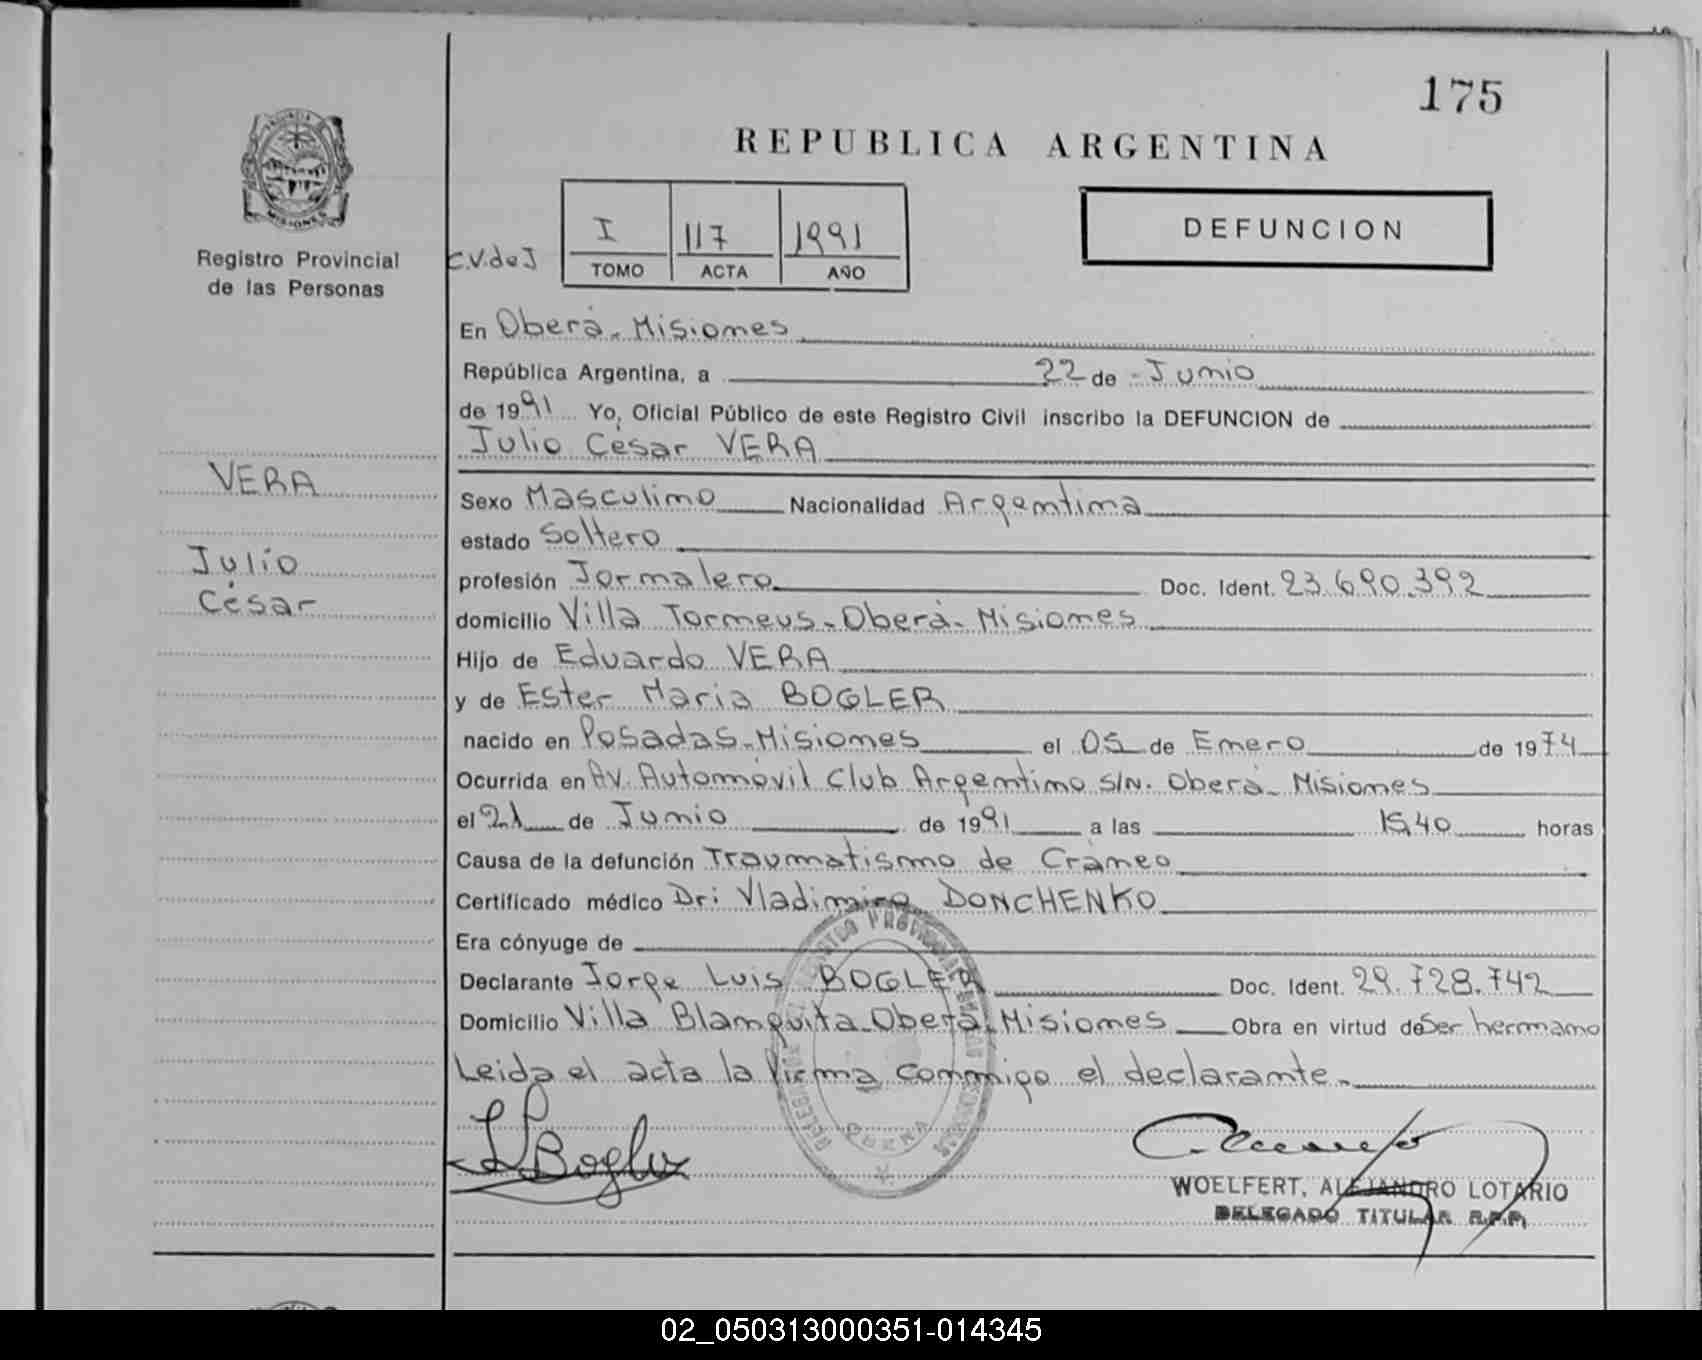 175
REPUBLICA ARGENTINA
MISIONES
Registro Provincial
de las Personas
C.V.de J
I 117 1991
TOMO ACTA AÑO
DEFUNCION
En Oberá - Misiones
República Argentina, a 22 de Junio
de 1991 Yo, Oficial Público de este Registro Civil inscribo la DEFUNCION de
Julio César VERA
VERA
Julio
César
Sexo Masculino Nacionalidad Argentina
estado Soltero
profesión Jornalero Doc. Ident. 23.690.392
domicilio Villa Torneus - Oberá - Misiones
Hijo de Eduardo VERA
y de Ester Maria BOGLER
nacido en Posadas - Misiones el 05 de Enero de 1974
Ocurrida en Av. Automóvil Club Argentino S/N. Oberá - Misiones
el 21 de Junio de 1991 a las 15,40 horas
Causa de la defunción Traumatismo de Cráneo
Certificado médico Dr: Vladimiro DONCHENKO
Era cónyuge de
Declarante Jorge Luis BOGLER Doc. Ident. 29.728.742
Domicilio Villa Blanquita - Oberá - Misiones Obra en virtud de Ser hermano
Leida el acta la firma conmigo el declarante.
Bogler
WOELFERT, ALEJANDRO LOTARIO
DELEGADO TITULAR R.P.P.
02_050313000351-014345